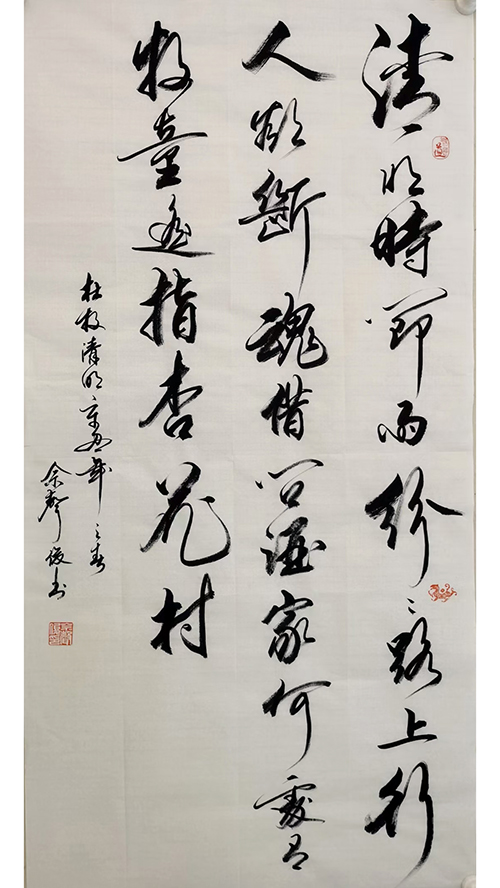 清明時節雨紛〻路上行
人欲斷魂借问酒家何處有
牧童遥指杏花村
杜牧清明辛丑年之春
余聲俊书